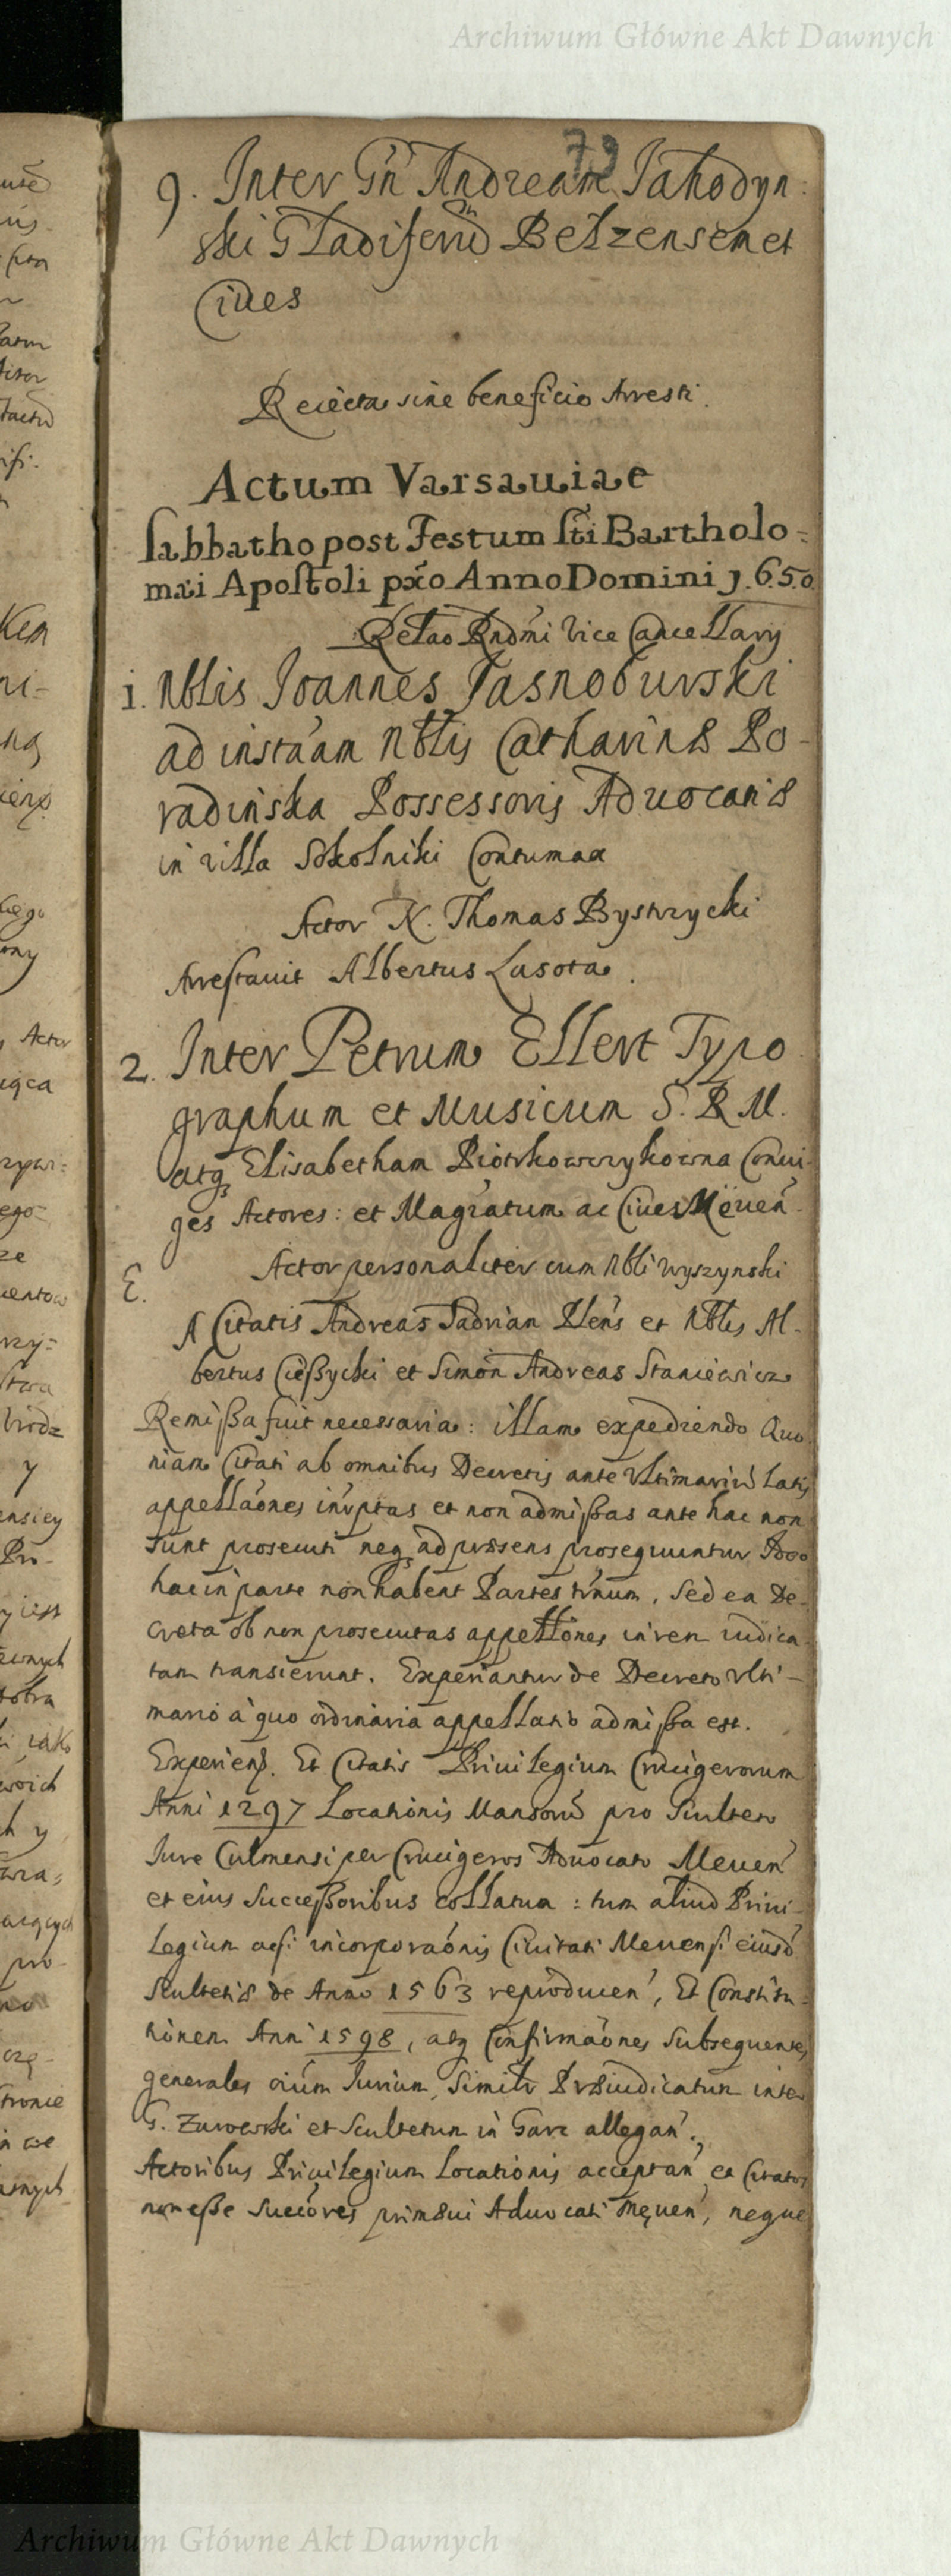 Archiwum Główne Akt Dawnych
79
9. Inter Gn̄ Andream Jahodyn:
ski Gladiferū Belzensem et
Ciues
Reiecta sine beneficio Arresti.
Actum Varsauiae
sabbatho post Festum sti Bartholo-
mæi Apostoli pxo Anno Domini 1.6.5.0.
Relao Rndmi Vice Cancellary
1. Nblis Joannes Jasnoburski
ad instaām Nblis Catharinæ Bo-
radinska Possessoris Aduocatiæ
in villa Sokolniki Contumax
Actor N. Thomas Bystrzycki
Arrestauit Albertus Lasota.
2. Inter Petrum Ellert Typo
graphum et Musicum S. R. M.
atq Elisabetham Piotrkowczykowna Coniu-
ges Actores: et Magratum ac Ciues Meuen̄.
Actor personaliter cum Nbli Wyszynski
E.
A Citatis Andreas Sadrian Plens et Nbles Al-
bertus Cießycki et Simon Andreas Staniewicz
Remißa fuit necessaria: illam expediendo Quo
niam Citati ab omnibus Decretis ante Vltimariū latis
appellaōnes inṽptas et non admißas ante hac non
sunt prosecuti neq ad præsens prosequuntur Ideo
hac in parte non habent Partes trnum, sed ea De-
creta ob non prosecutas appellōnes in rem iudica
tam transierunt. Experiantur de Decreto Vlti-
mario à quo ordinaria appellatio admißa est.
Experien. Et Citatis Priuilegium Crucigerorum
Anni 1297 Locationis Mansorū pro Sculteto
Jure Culmensi per Crucigeros Aduocato Meuen̄
et eius Successoribus collatum: tum aliud Priui-
legium acsi incorporaōnis Ciuitati Meuensi eiusd
Scultetiæ de Anno 1563 reproducen̄, Et Constitu-
tionem Anni 1598, atq Confirmaōnes subsequentes
generales oium Jurium, Similr Præiudicatum inter
G. Zurowski et Scultetum in Garc allegan̄.
Actoribus Priuilegium Locationis acceptan̄ et Citatos
non eße Succōres primæui Aduocati Meuen̄, neque
Archiwum Główne Akt Dawnych